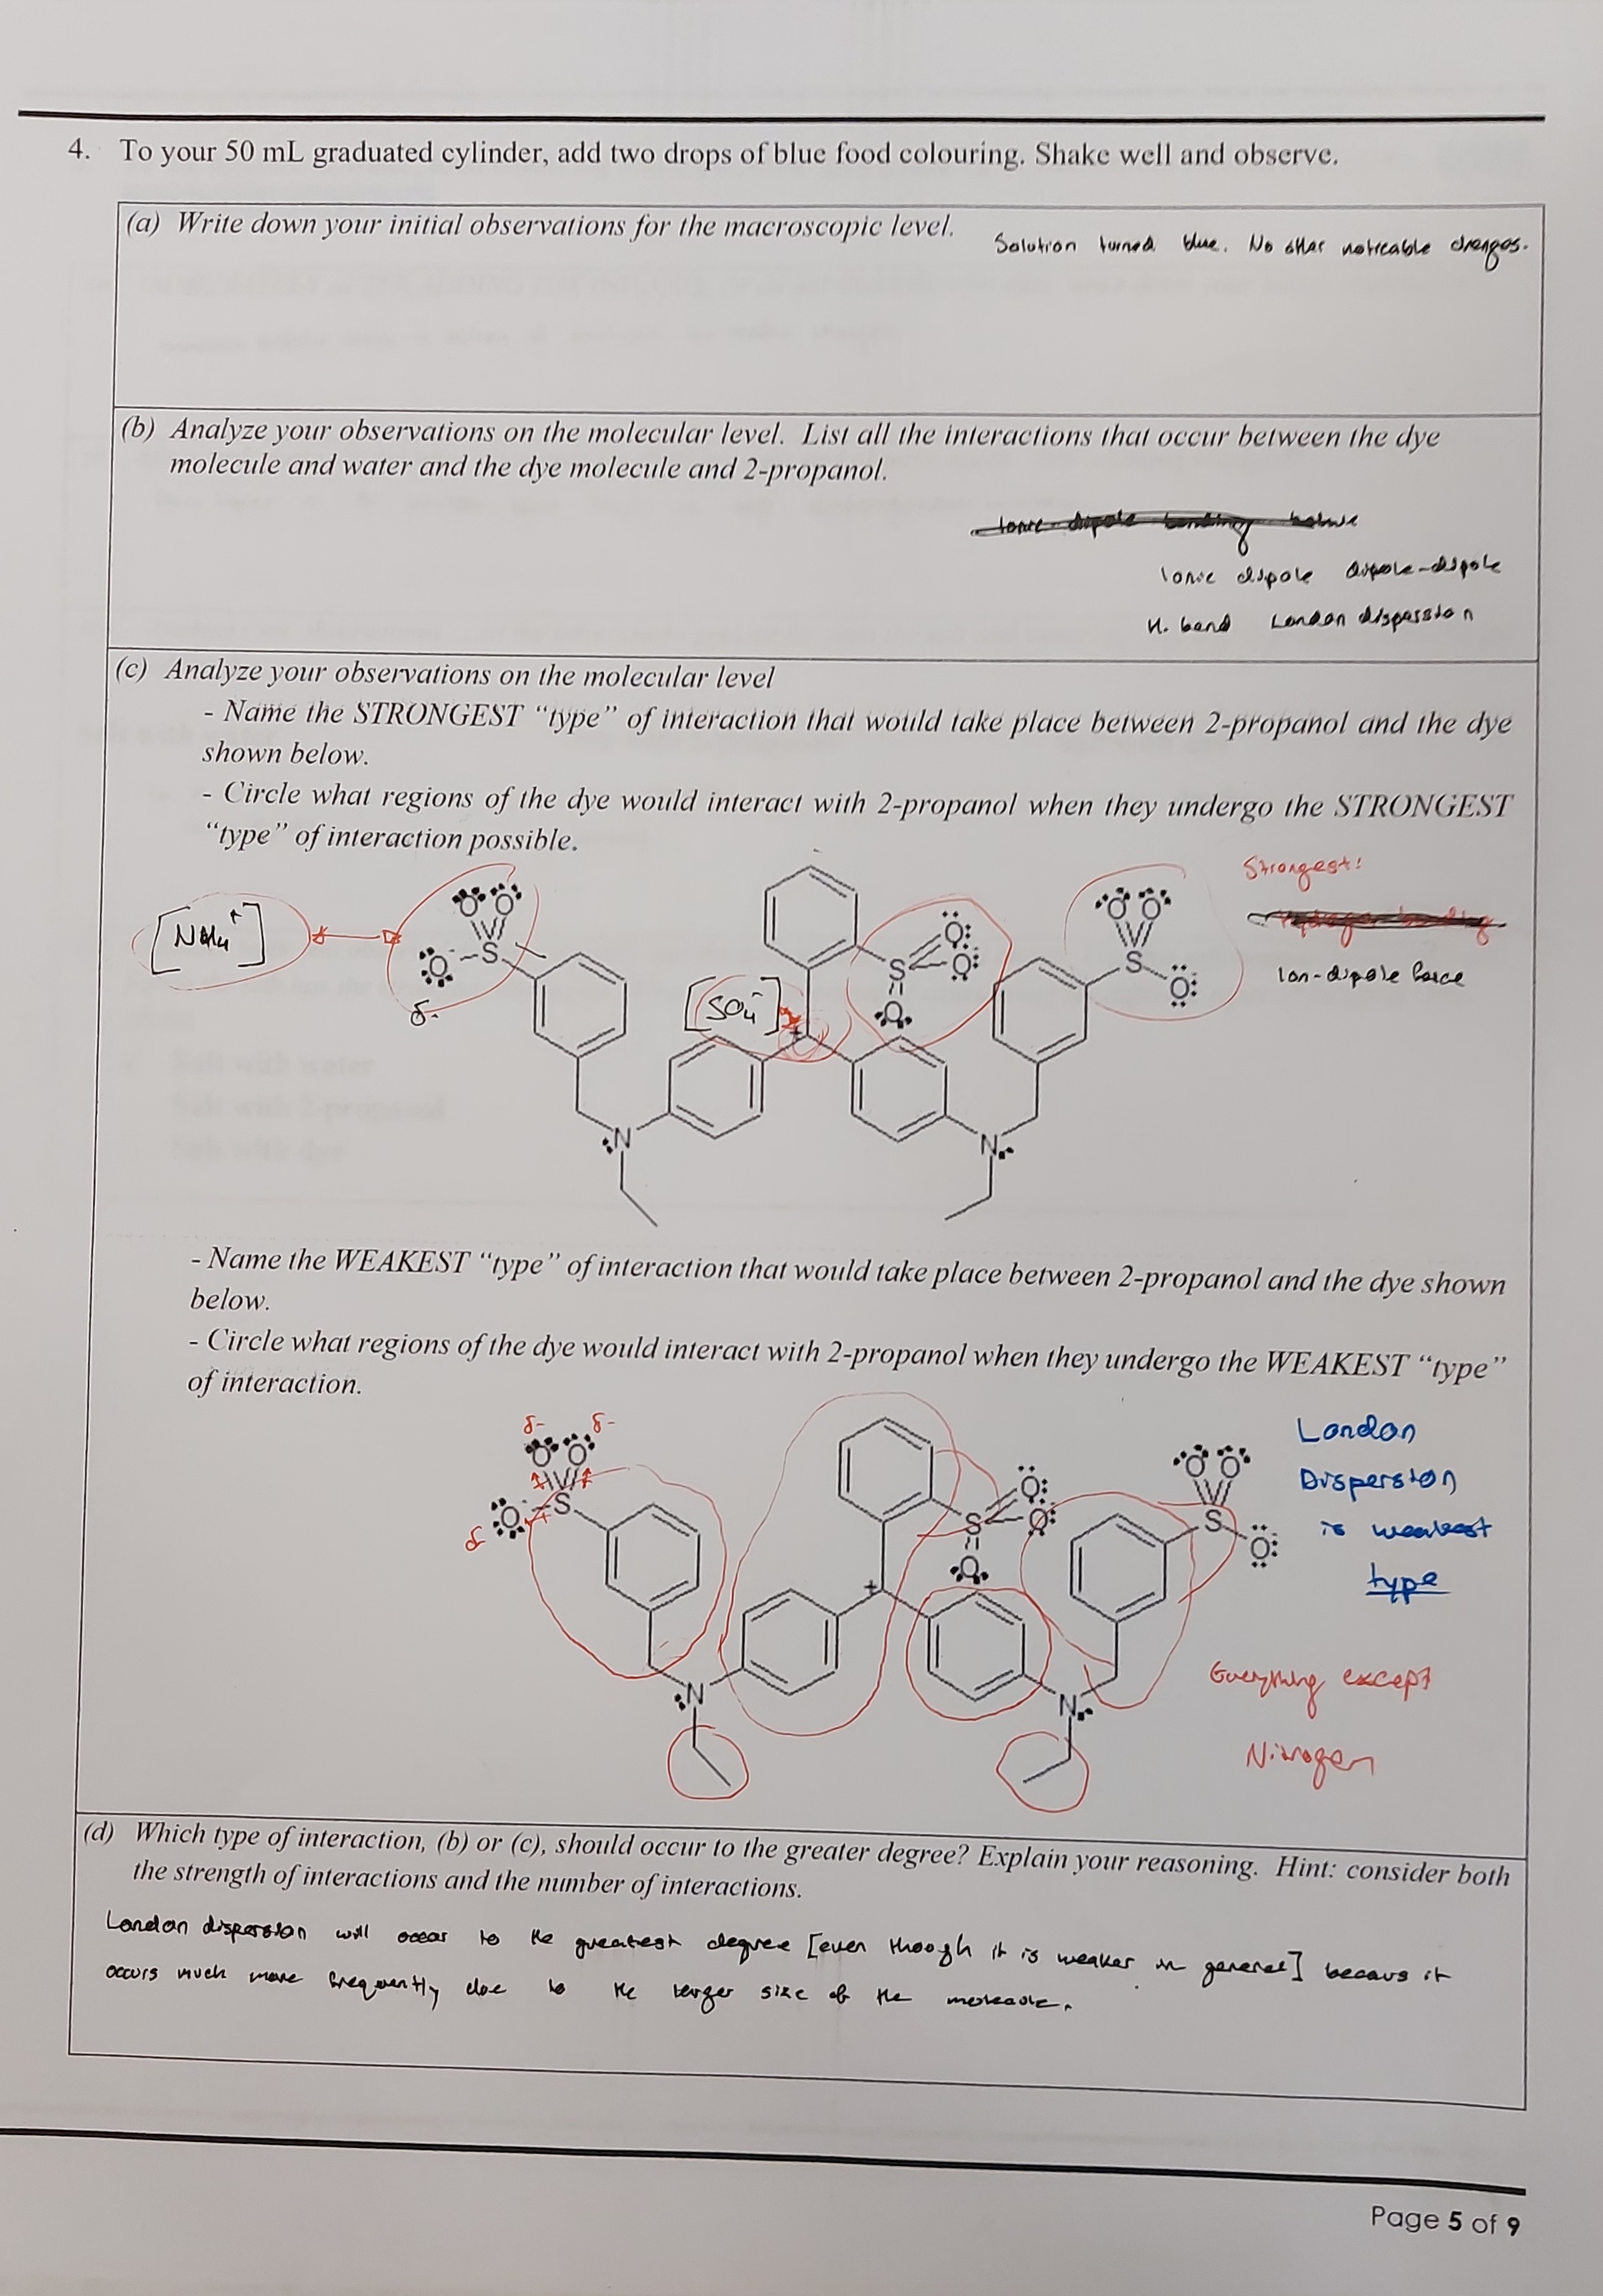 4. To your 50 mL graduated cylinder, add two drops of blue food colouring. Shake well and observe.
(a) Write down your initial observations for the macroscopic level.
Solution turned blue. No other noticeable changes.
(b) Analyze your observations on the molecular level. List all the interactions that occur between the dye
molecule and water and the dye molecule and 2-propanol.
Ionic dipole Dipole-dipole
H. bond London dispersion
(c) Analyze your observations on the molecular level
- Name the STRONGEST “type” of interaction that would take place between 2-propanol and the dye
shown below.
- Circle what regions of the dye would interact with 2-propanol when they undergo the STRONGEST
“type” of interaction possible.
Strongest:
Hydrogen bonding
Ion-dipole force
[NH4+]
O O
O S
δ-
[SO4-]
+
S O
O
O
O O
S O
N N
- Name the WEAKEST “type” of interaction that would take place between 2-propanol and the dye shown
below.
- Circle what regions of the dye would interact with 2-propanol when they undergo the WEAKEST “type”
of interaction.
δ- δ-
O O
O S
δ-
+
S O
O
O
O O
S O
N N
London
Dispersion
is weakest
type
Everything except
Nitrogen
(d) Which type of interaction, (b) or (c), should occur to the greater degree? Explain your reasoning. Hint: consider both
the strength of interactions and the number of interactions.
London dispersion will occur to the greatest degree [even though it is weaker in general] becaus it
occurs much more frequently due to the larger size of the molecule.
Page 5 of 9